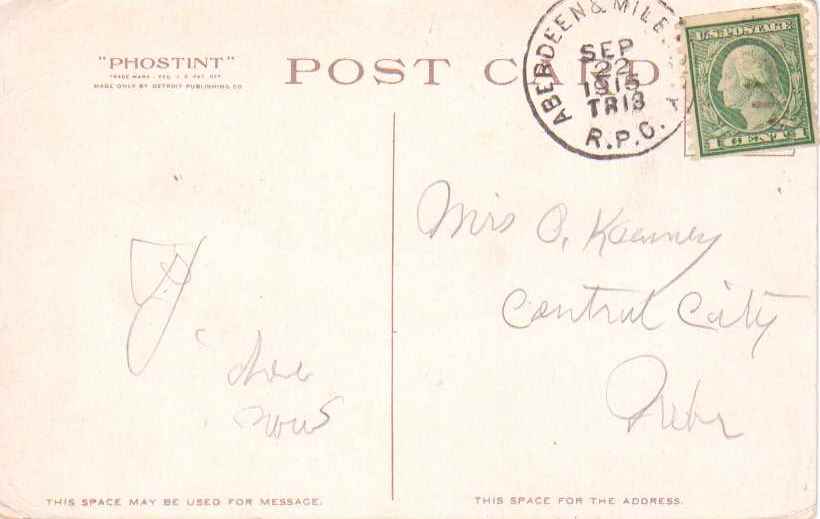 "PHOSTINT"
TRADE MARK - REG. U.S. PAT. OFF.
MADE ONLY BY DETROIT PUBLISHING CO
POST CARD
ABERDEEN & MILE
SEP
22
1915
TR13
R.P.O.
U.S. POSTAGE
1 CENT 1
Mrs O.
Central City
Nebr
THIS SPACE MAY BE USED FOR MESSAGE.
THIS SPACE FOR THE ADDRESS.